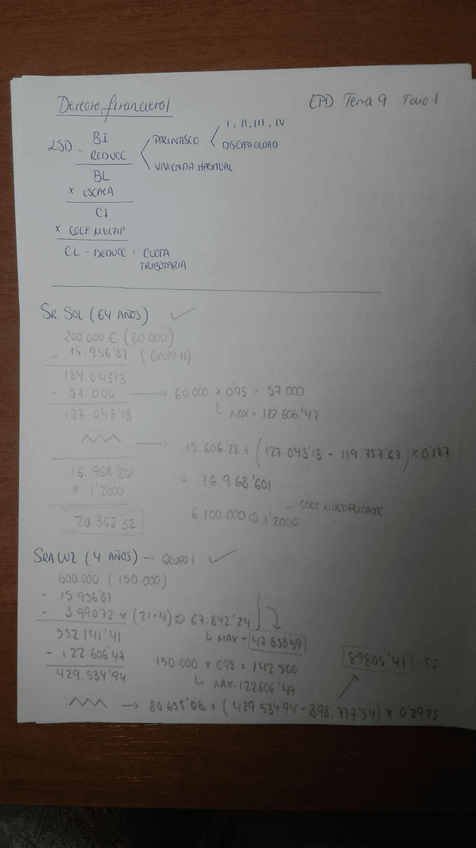 Derecho financiero I
EPD Tema 9 Folio 1
I, II, III, IV
ISD BI
- REDUCC
PARENTESCO
DISCAPACIDAD
VIVIENDA HABITUAL
BL
x ESCALA
CI
x COEF MULTIP
CL - DEDUCC = CUOTA
TRIBUTARIA
SR SOL (64 AÑOS) ✓
200.000 € (60.000)
- 15.956'87 (GRUPO II)
184.043'13
- 57.000 → 60.000 x 0'95 = 57.000
127.043'13 MAX = 122.606'47
→ 15.606'22 + (127.043'13 - 119.757'67) x 0'187
16.968'601 = 16.968'601
x 1'2000
COEF MULTIPLICADOR
20.362'32
6.100.000 ⇒ 1'2000
SRA LUZ (4 AÑOS) - GRUPO I ✓
600.000 (150.000)
- 15956'87
- 3.990'72 x (21-4) ⇒ 67.842'24
MAX = 47.858'59
552.141'41
- 122.606'47 150.000 x 0'95 = 142.500
89805'41
429.534'94 MAX = 122606'47
→ 80.655'08 + (429.534'94 - 398.777'54) x 0'2975